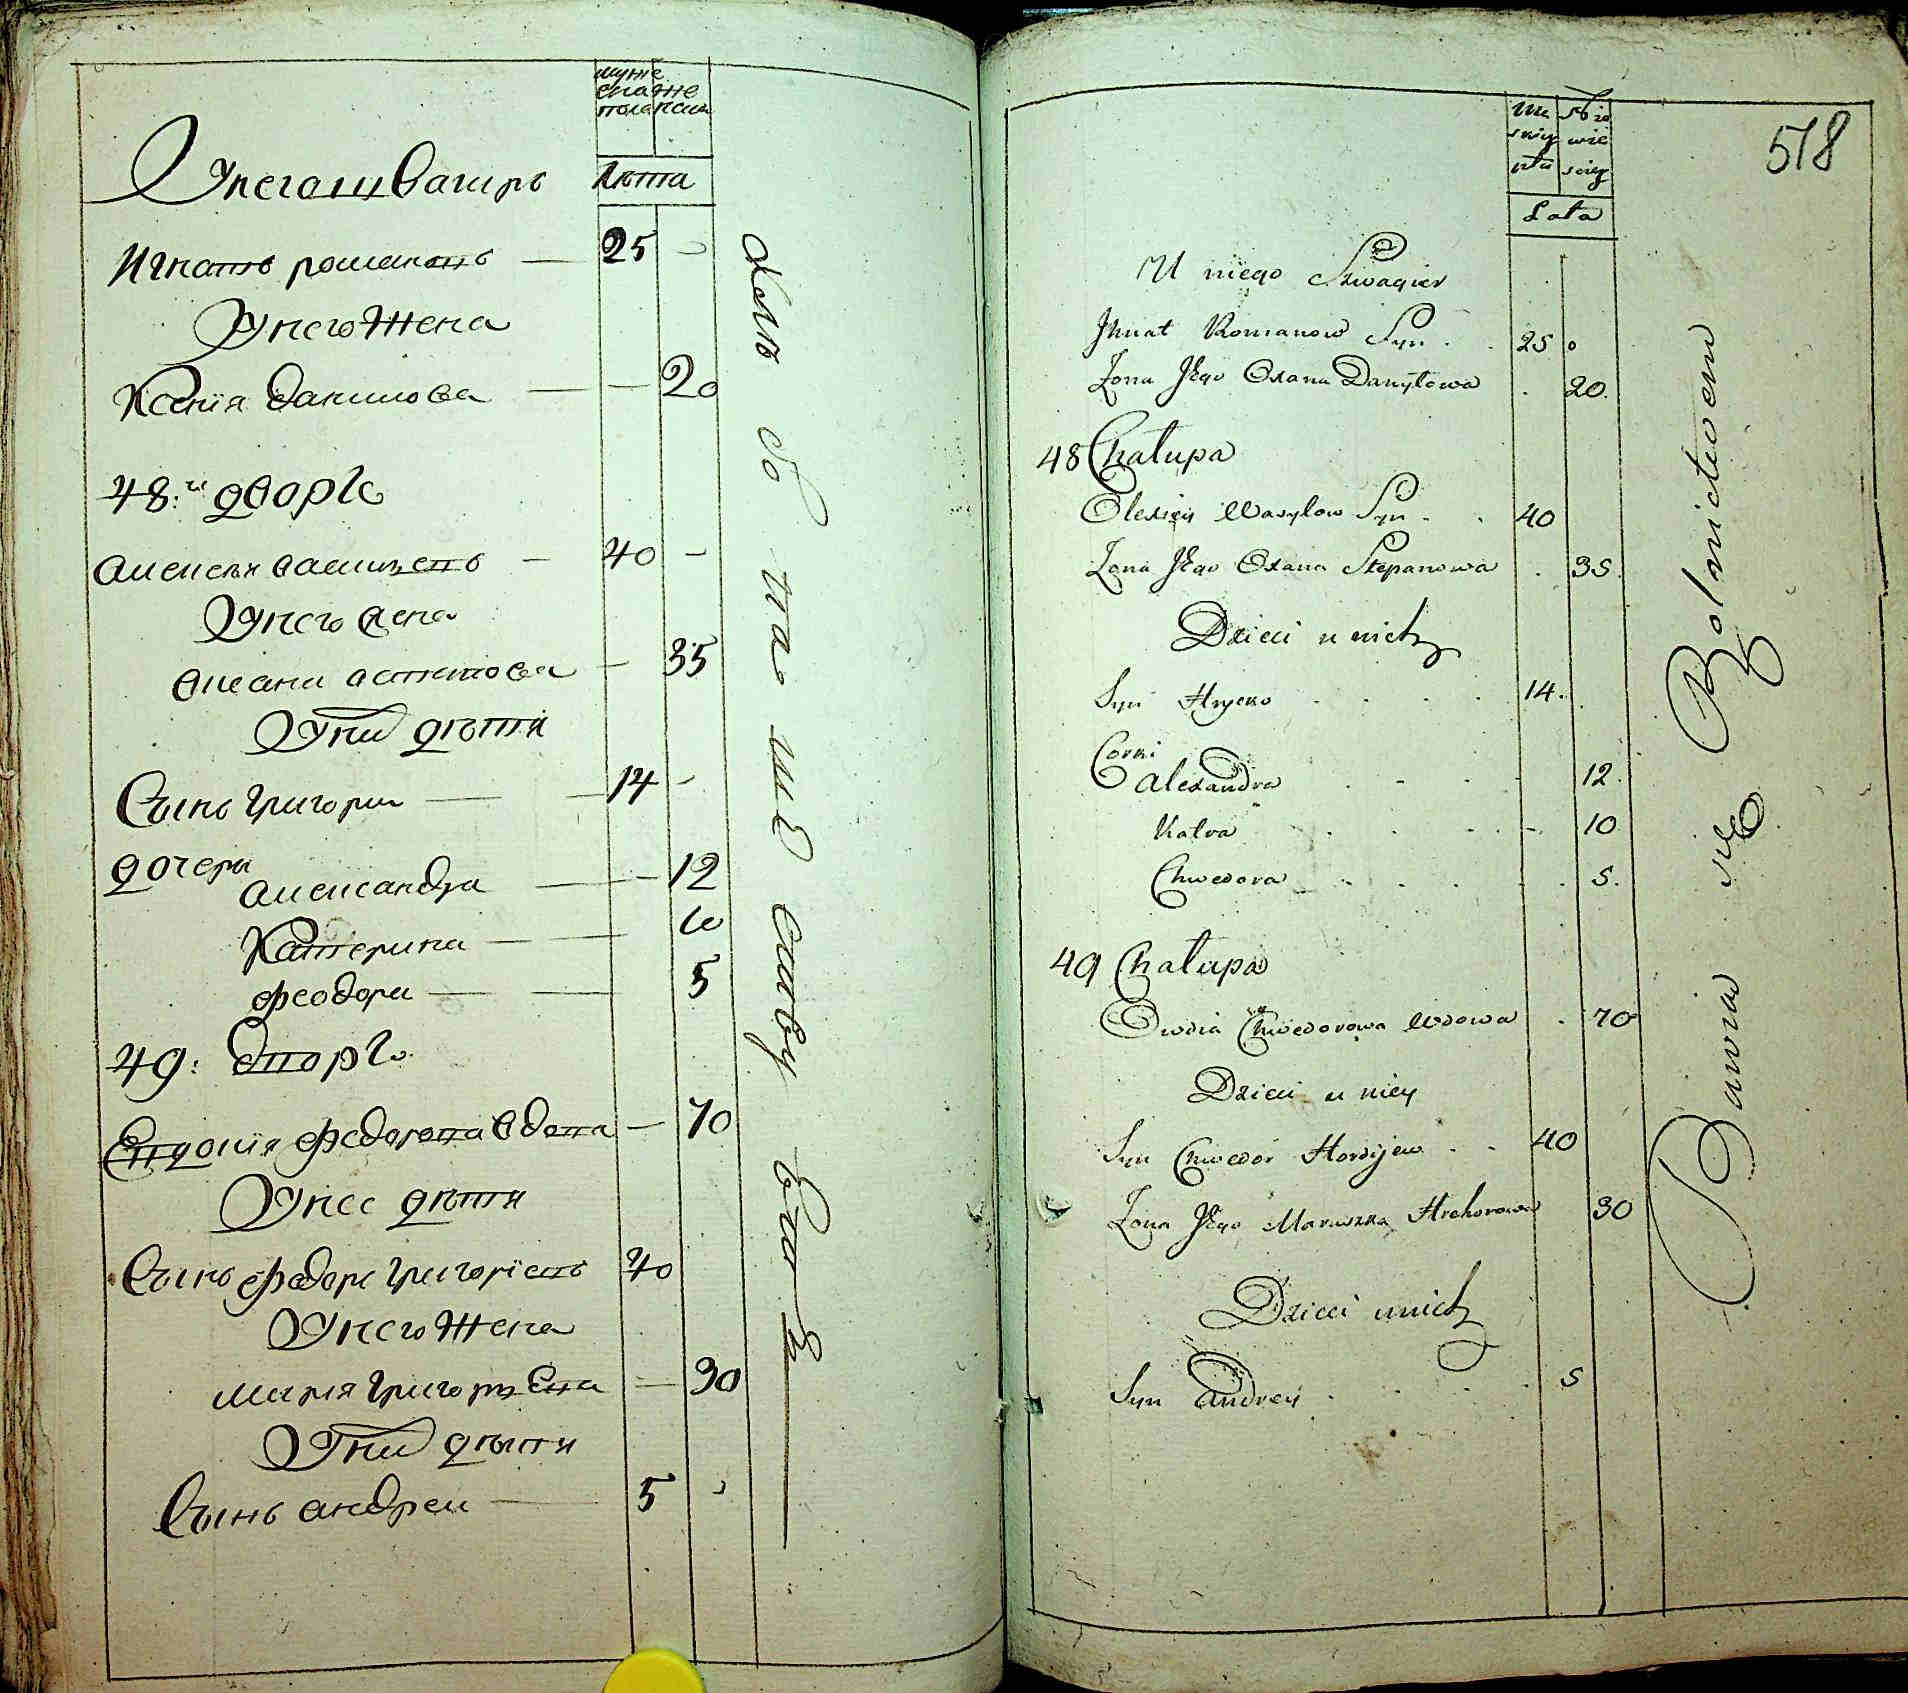 муже
ска же
пола нска
Лѣта
У него швагиръ
Игнатъ романовъ — 25 -
У него жена
Ксения данилова — — 20
48:й дворъ
алексѣй василевъ — 40 -
У него жена
оксана
 — 35
У них дѣти
Сынъ григори — 14 -
дочери
александра — 12
Катерина — 10
феодора — 5
49: дворъ
Евдокия федорова вдова — 70
У нее дѣти
Сынъ федоръ григориевъ 40
У него жена
мария григорьева — 30
У них дѣти
Сынъ андреи — 5 -
518
Mę Bia
skiey wie
płci skiey
Lata
U niego Szwagier
Jhnat Romanow Syn . . 25 .
Żona Jego Oxana Danyłowa . 20.
48 Chałupa
Olexiey Wasylow Syn . . 40
Żona Jego Oxana Stepanowa . 35.
Dzieci u nich
Syn Hrycko . . . . 14.
Corki
Alexandra 12.
Katra 10
Chwedora 5.
49 Chałupa
Owdia Chwedorowa Wdowa . 70
Dzieci u niey
Syn Chwedor Hordijew . . 40
Żona Jego Maruszka Hrehorowa 30
Dzieci u nich
Syn Andrey . . . . 5
Bawią się Rolnictwem